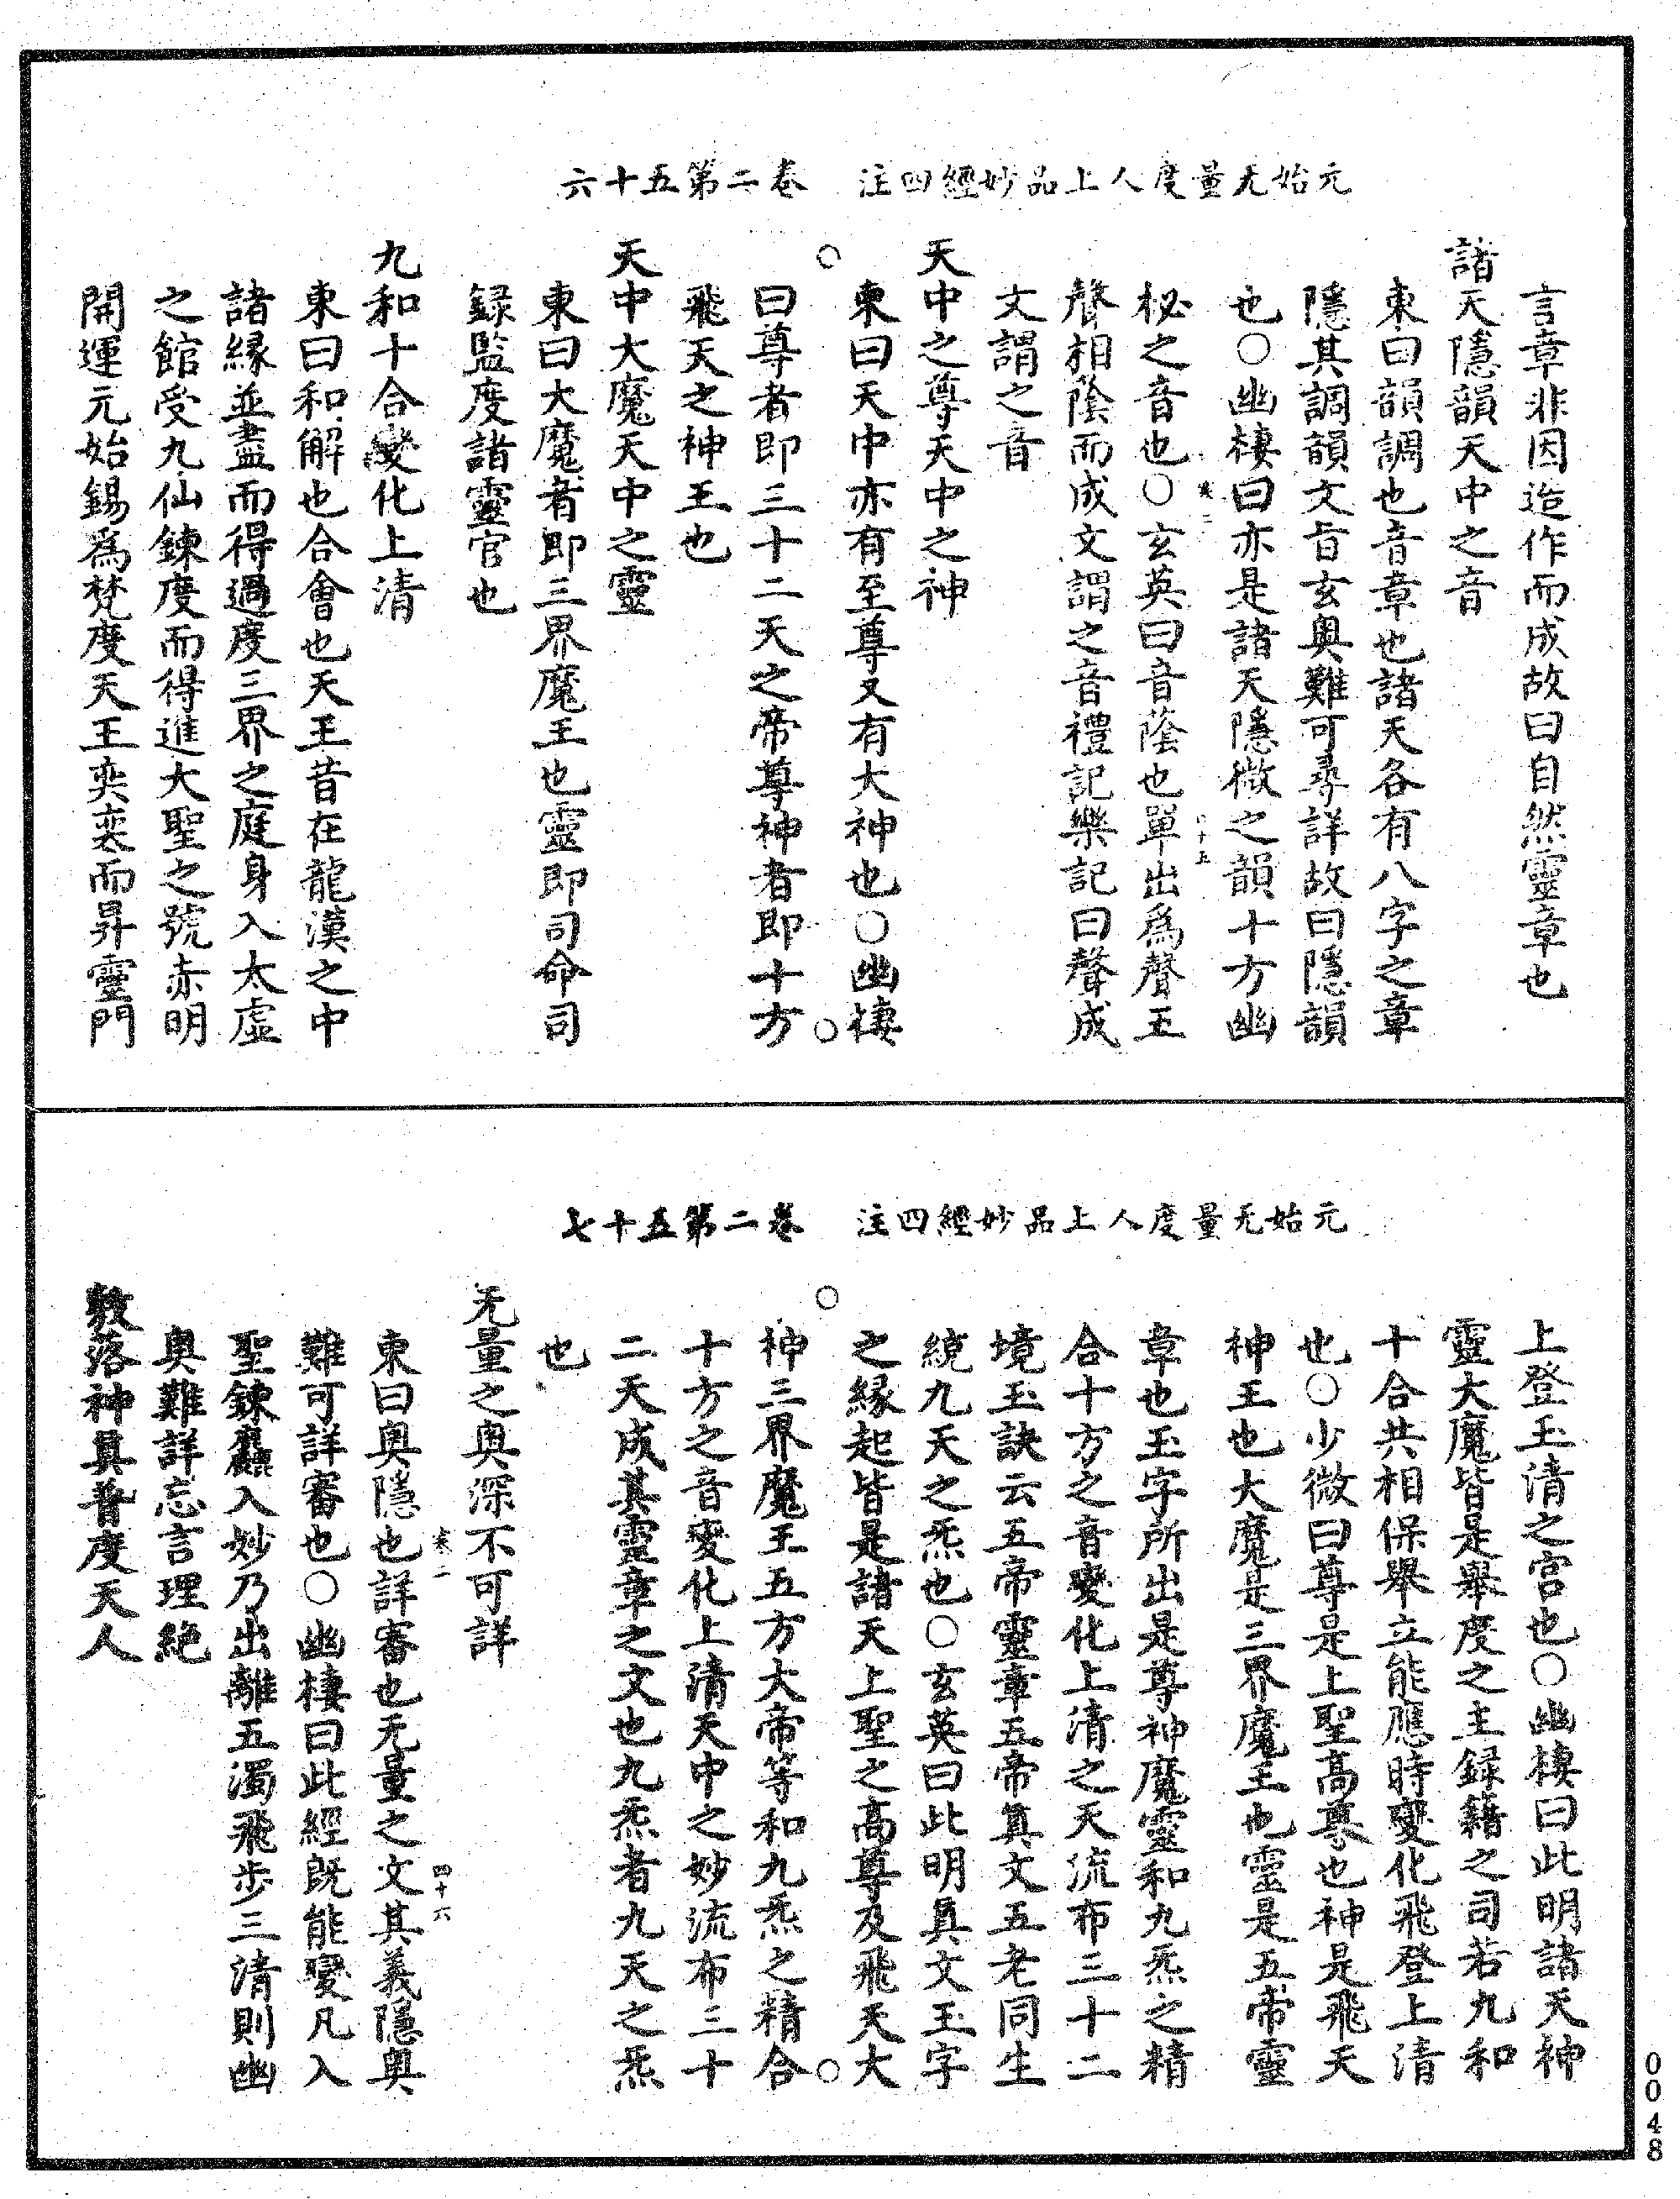 元始无量度人上品妙經四注　卷二第五十六
言章非因造作而成故曰自然靈章也
諸天隱韻天中之音
東曰韻調也音章也諸天各有八字之章
隱其調韻文旨玄奥難可尋詳故曰隱韻
也○幽棲曰亦是諸天隱微之韻十方幽
卷二　四十五
祕之音也○玄英曰音蔭也單出爲聲五
聲相陰而成文謂之音禮記樂記曰聲成
文謂之音
天中之尊天中之神
東曰天中亦有至尊又有大神也○幽棲
曰尊者即三十二天之帝尊神者即十方
飛天之神王也
天中大魔天中之靈
東曰大魔者即三界魔王也靈即司命司
録監度諸靈官也
九和十合變化上清
東曰和解也合會也天王昔在龍漢之中
諸縁並盡而得過度三界之庭身入太虛
之館受九仙鍊度而得進大聖之號赤明
開運元始錫爲梵度天王奕奕而昇靈門
元始无量度人上品妙經四注　卷二第五十七
上登玉清之宮也○幽棲曰此明諸天神
靈大魔皆是舉度之主録籍之司若九和
十合共相保舉立能應時變化飛登上清
也○少微曰尊是上聖高尊也神是飛天
神王也大魔是三界魔王也靈是五帝靈
章也玉字所出是尊神魔靈和九炁之精
合十方之音變化上清之天流布三十二
境玉訣云五帝靈章五帝真文五老同生
統九天之炁也○玄英曰此明真文玉字
之縁起皆是諸天上聖之高尊及飛天大
神三界魔王五方大帝等和九炁之精合
十方之音變化上清天中之妙流布三十
二天成其靈章之文也九炁者九天之炁
也
无量之奥深不可詳
卷二　四十六
東曰奥隱也詳審也无量之文其義隱奥
難可詳審也○幽棲曰此經既能變凡入
聖鍊麤入妙乃出離五濁飛步三清則幽
奥難詳忘言理絶
敷落神真普度天人
0048